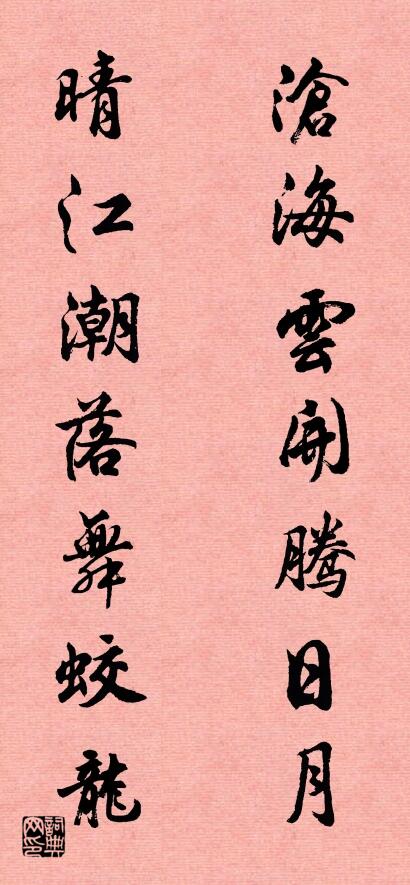 滄海雲開騰日月
晴江潮落舞蛟龍
詞典网印